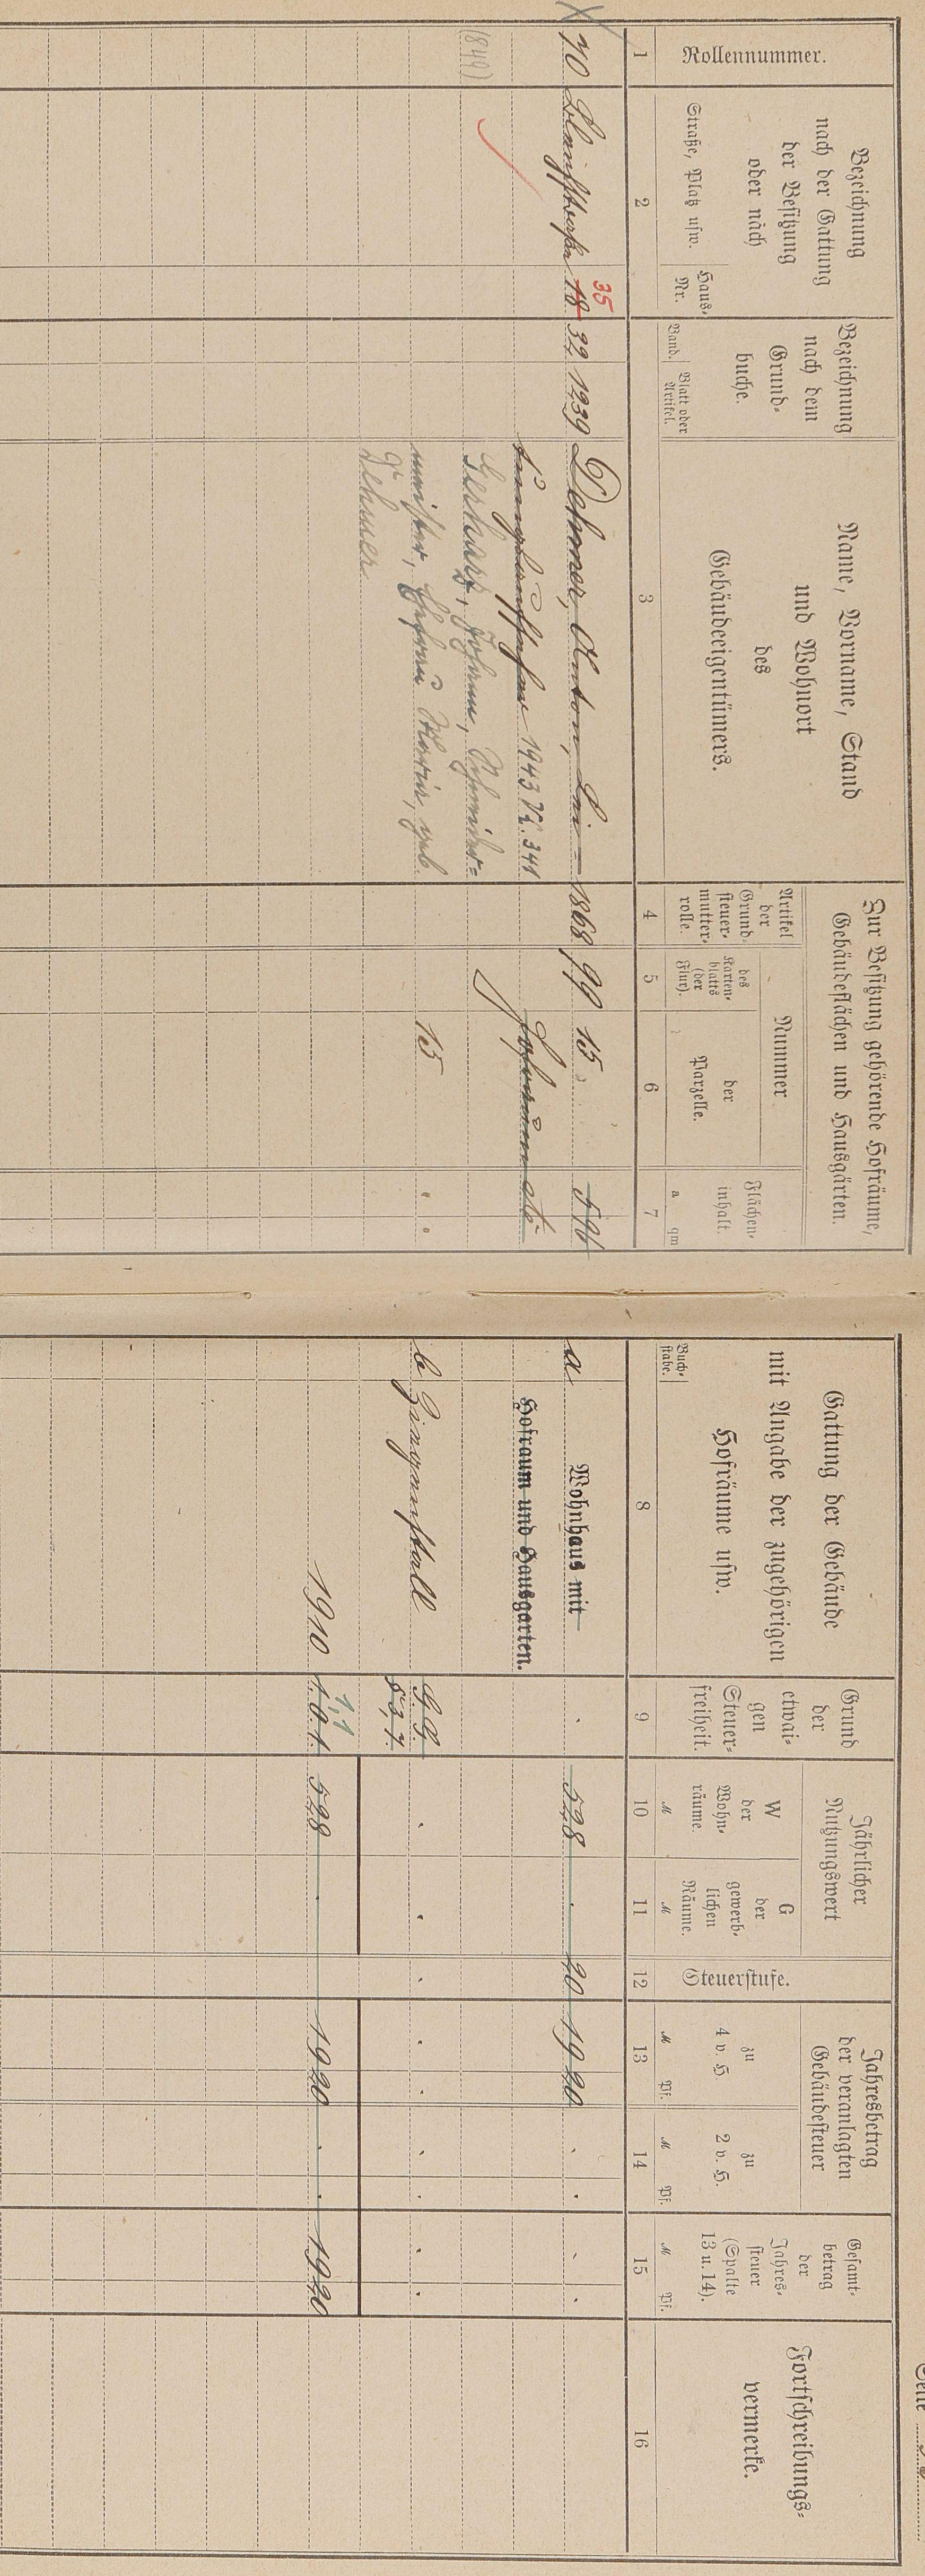 Seite
Rollennummer.
Bezeichnung
nach der Gattung
der Besitzung
oder nach
Straße, Platz usw.
Haus-
Nr.
Bezeichnung
nach dem
Grund-
buche.
Band.
Blatt oder
Artikel.
Name, Vorname, Stand
und Wohnort
des
Gebäudeeigentümers.
Zur Besitzung gehörende Hofräume,
Gebäudeflächen und Hausgärten.
Artikel
der
Grund-
steuer-
mutter-
rolle.
Nummer
des
Karten-
blatts
(der
Flur).
der
Parzelle.
Flächen-
inhalt.
a qm
Gattung der Gebäude
mit Angabe der zugehörigen
Hofräume usw.
Buch-
stabe.
Grund
der
etwai-
gen
Steuer-
freiheit.
Jährlicher
Nutzungswert
W
der
Wohn-
räume.
M
G
der
gewerb-
lichen
Räume.
M
Steuerstufe.
Jahresbetrag
der veranlagten
Gebäudesteuer
zu
4 v. H.
M Pf.
zu
2 v. H.
M Pf.
Gesamt-
betrag
der
Jahres-
steuer
(Spalte
13 u. 14).
M Pf.
Fortschreibungs-
vermerke.
1 2 3 4 5 6 7 8 9 10 11 12 13 14 15 16
35
70 18 32 1239 Dehmer, Anton, 1868 99 15 5 96 a Wohnhaus mit 528 20 19 20
1943 VL. 341 Hofraum und Hausgarten.
(849) Gerharz, Johann, Schneider-
meister, Ehefrau Maria, geb. 15 b Ziegenstall
Dehmer
1,1
1910 1.0.1. 528 19 20 19 20